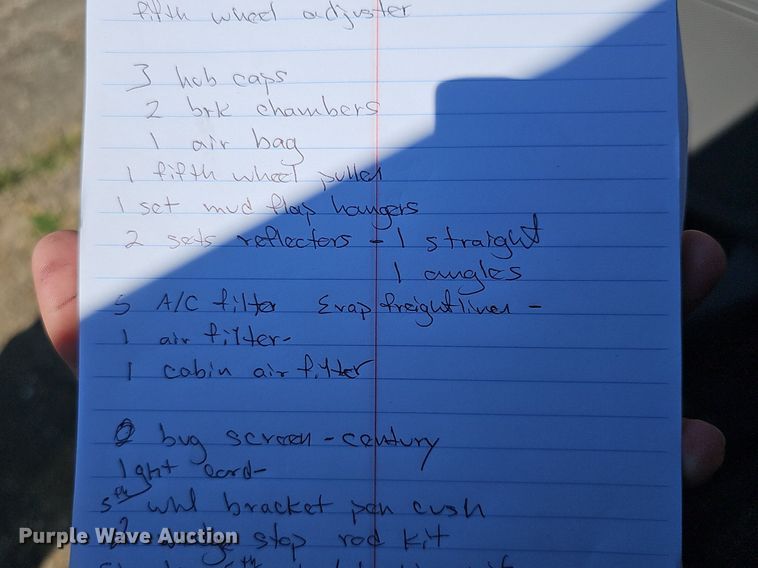 fifth wheel adjuster
3 hub caps
2 brk chambers
1 air bag
1 fifth wheel puller
1 set mud flap hangers
2 sets reflectors - 1 straight
1 angles
5 A/C filter Evap freightliner -
1 air filter-
1 cabin air filter
bug screen - century
5th whl bracket pen cush
stop rod kit
Purple Wave Auction